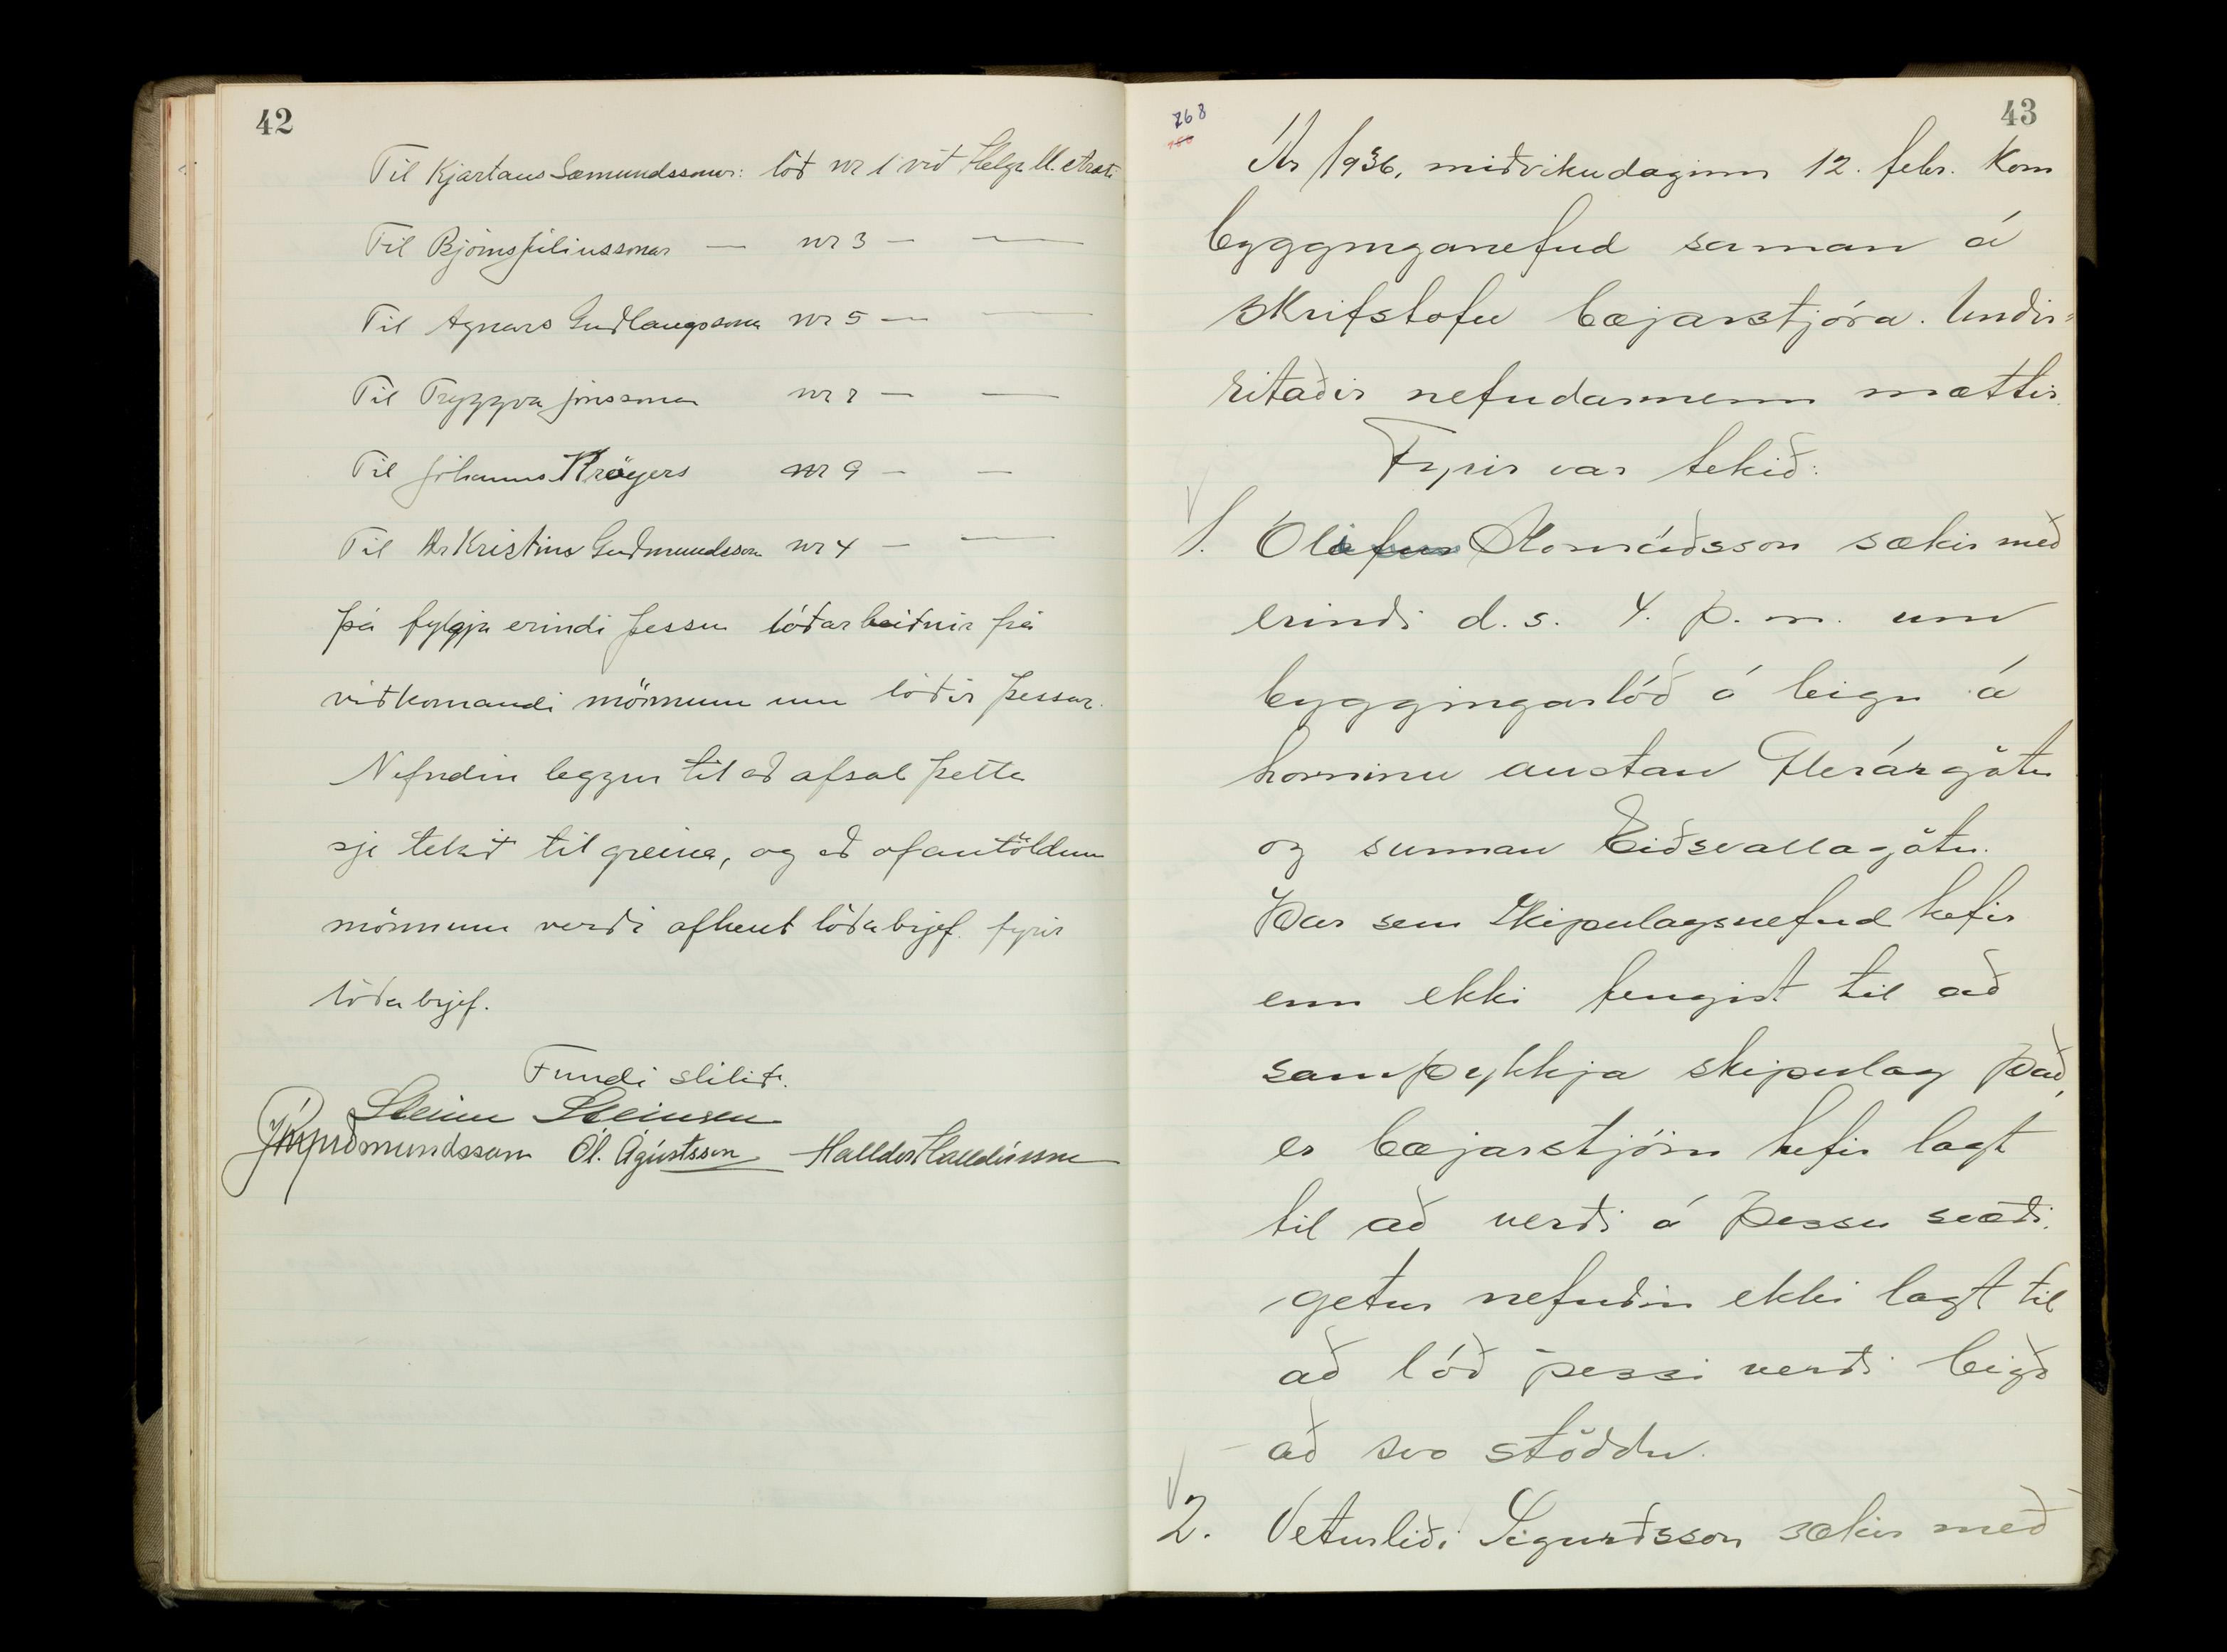 42
Til Kjartans Sæmundssonar: lóð nr 1 við Helga M. stræti
Til Björns Júlíussonar — nr 3 — —
Til Agnars Guðlaugssonar nr 5 — —
Til Tryggva Jónssonar nr 7 — —
Til Jóhanns Kröyers nr 9 — —
Til Dr Kristins Guðmundssonar nr 4 — —
Þá fylgja erindi þessu lóðarbeiðnir frá
viðkomandi mönnum um lóðir þessar.
Nefndin leggur til að afsal þetta
sje tekið til greina, og að ofantöldum
mönnum verði afhent lóðabrjef fyrir
lóðabrjef.
Fundi slitið.
Steinn Steinsen
Guðmundsson Ól. Ágústsson Halldór Halldórsson
43
268
Ár 1936, miðvikudaginn 12. febr. kom
bygginganefnd saman á
skrifstofu bæjarstjóra. Undir-
ritaðir nefndarmenn mættir.
Fyrir var tekið:
1. Ólafur Konráðsson sækir með
erindi d.s. 4. þ.m. um
byggingarlóð á leigu á
horninu austan Glerárgötu
og sunnan Eiðsvallagötu.
Þar sem Skipulagsnefnd hefir
enn ekki fengist til að
samþykkja skipulag það,
er bæjarstjórn hefir lagt
til að verði á þessu svæði,
getur nefndin ekki lagt til
að lóð þessi verði leigð
að svo stöddu.
2. Veturliði Sigurðsson sækir með